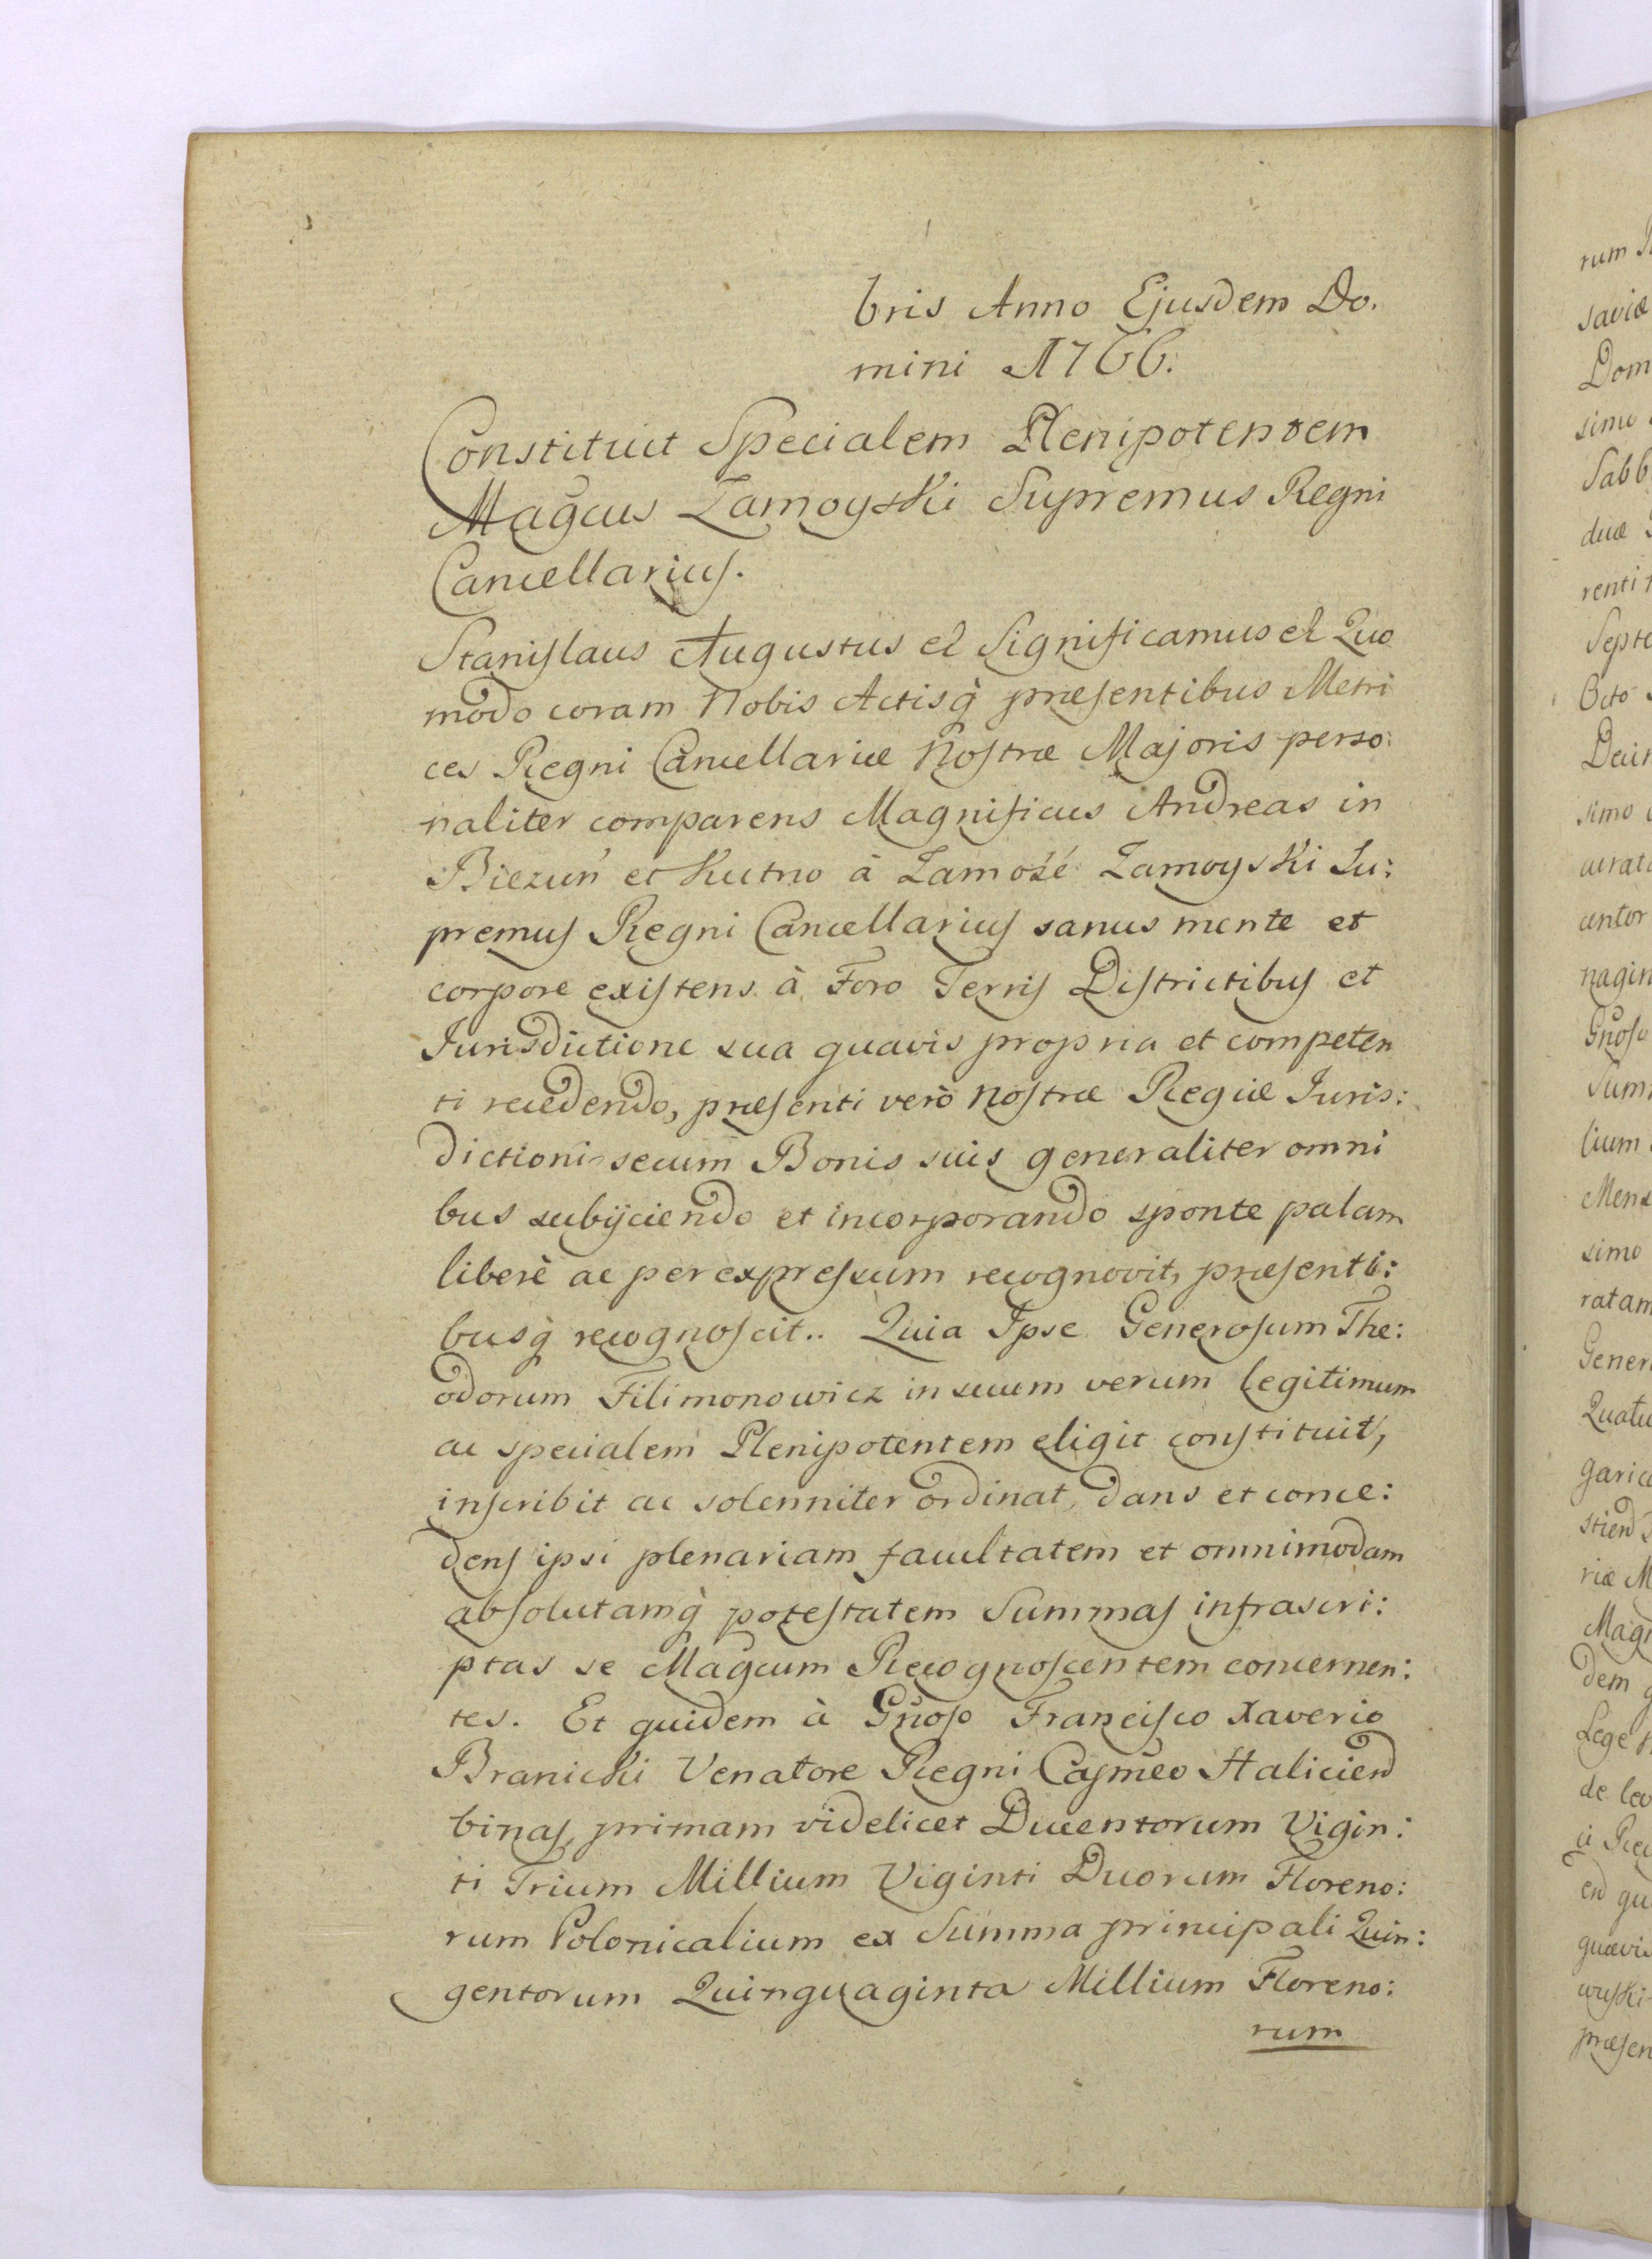 bris Anno Ejusdem Do.
mini 1766.
Constituit Specialem Plenipotentem
Magcus Zamoyski Supremus Regni
Cancellarius.
Stanislaus Augustus et Significamus et Quo
modo coram Nobis Actisq̀ præsentibus Metri
ces Regni Cancellariæ Nostræ Majoris perso:
naliter comparens Magnificus Andreas in
Biezuń et Kutno à Zamość Zamoyski Su:
premus Regni Cancellarius sanus mente et
corpore existens à Foro Terris Districtibus et
Jurisdictione sua quavis propria et competen
ti recedendo, præsenti verò Nostræ Regiæ Juris:
dictioni secum Bonis suis generaliter omni
bus subijciendo et incorporando sponte palam
liberè ac per expressum recognovit, præsenti:
busq̀ recognoscit.. Quia Ipse Generosum The:
odorum Filimonowicz in suum verum legitimum
ac specialem Plenipotentem eligit constituit,
inscribit ac solenniter ordinat, dans et conce:
dens ipsi plenariam facultatem et omnimodam
absolutamq̀ potestatem Summas infrascri:
ptas se Magcum Recognoscentem concernen:
tes. Et quidem à Gnoso Francisco Xaverio
Branicki Venatore Regni Capneo Halicien
binas, primam videlicet Ducentorum Vigin:
ti Trium Millium Viginti Duorum Floreno:
rum Polonicalium ex Summa principali Quin:
gentorum Quinquaginta Millium Floreno:
rum
rum
saviæ
Dom
simo
Sabb
duæ
renti
Septe
Octo
simo
centor
nagin
Gnoso
lium
Mens
simo
ratam
Gener
riæ M
Mag
dem
Lege
en qu
quævis
præsen